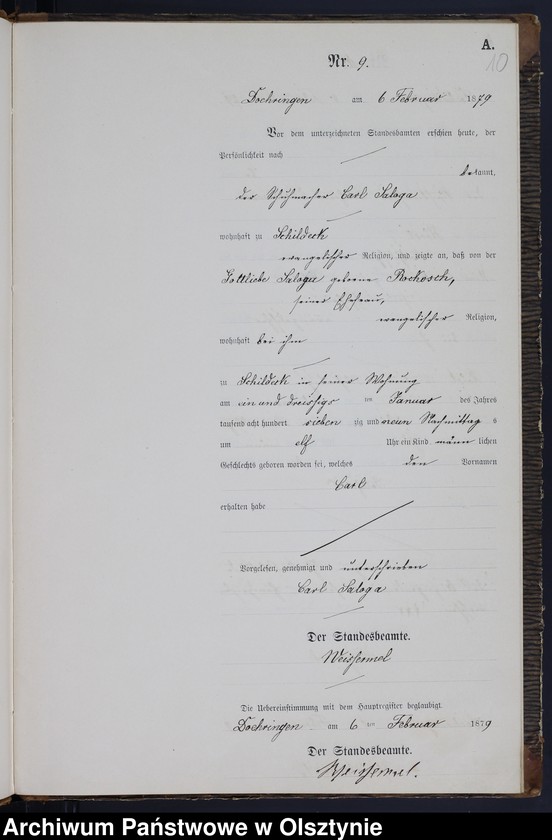 A.
10
Nr. 9.
Doehringen am 6 Februar 1879
Vor dem unterzeichneten Standesbamten erschien heute, der
Persönlichkeit nach
bekannt,
der Schuhmacher Carl Saloga
wohnhaft zu Schildeck
evangelischer Religion, und zeigte an, daß von der
Gottliebe Saloga geborene Rockosch,
seiner Ehefrau,
evangelischer Religion,
wohnhaft bei ihm
zu Schildeck in seiner Wohnung
am ein und dreissigs ten Januar des Jahres
tausend acht hundert sieben zig und neun Nachmittag s
um elf Uhr ein Kind männ lichen
Geschlechts geboren worden sei, welches den Vornamen
Carl
erhalten habe
Vorgelesen, genehmigt und unterschrieben
Carl Saloga
Der Standesbeamte.
Weissermel
Die Uebereinstimmung mit dem Hauptregister beglaubigt.
Doehringen am 6 ten Februar 1879
Der Standesbeamte.
Weissermel.
Archiwum Państwowe w Olsztynie